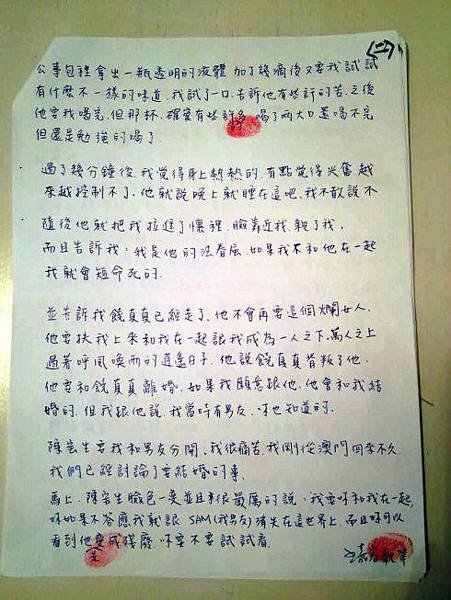 (二)
公事包裡拿出一瓶透明的液體 加了幾滴後又要我試試
有什麼不一樣的味道 我試了一口 告訴他有些許的苦 之後
他要我喝完 但那杯 確實有些許多 喝了兩大口 還喝不完
但還是勉強的喝了
過了幾分鐘後 我覺得身上熱熱的 有點覺得興奮 越
來越控制不了 他就說晚上就睡在這吧 我不敢說不
隨後他就把我拉進了懷裡 臉靠近我 親了我
而且告訴我 我是他的法眷屬 如果我不和他在一起
我就會短命死的
並告訴我饒真真已經走了 他不會再要這個爛女人
他要扶我上來和我在一起讓我成為一人之下 萬人之上
過著呼風喚雨的逍遙日子 他說饒真真背叛了他
他要和饒真真離婚 如果我願意跟他 他會和我結
婚的 但我跟他說 我當時有男友 你也知道的
陳宏生要我和男友分開 我很痛苦 我剛從澳門回來不久
我們已經討論了要結婚的事
馬上 陳宏生臉色一變並且很嚴厲的說 我要你和我在一起
你如果不答應我就讓 SAM(我男友)消失在這世界上 而且你可以
看到他變成殘廢 你要不要試試看
生